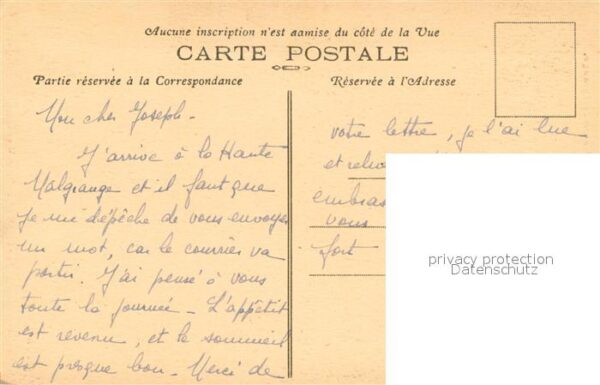 Aucune inscription n'est admise du côté de la Vue
CARTE POSTALE
Partie réservée à la Correspondance
Réservée à l'Adresse
Mon cher Joseph -
J'arrive à la Haute
Malgrange et il faut que
je me dépêche de vous envoyer
un mot, car le courrier va
partir. J'ai pensé à vous
toute la journée - L'appétit
est revenu, et le sommeil
est presque bon - Merci de
votre lettre, je l'ai lue
et
vous
fort
privacy protection
Datenschutz